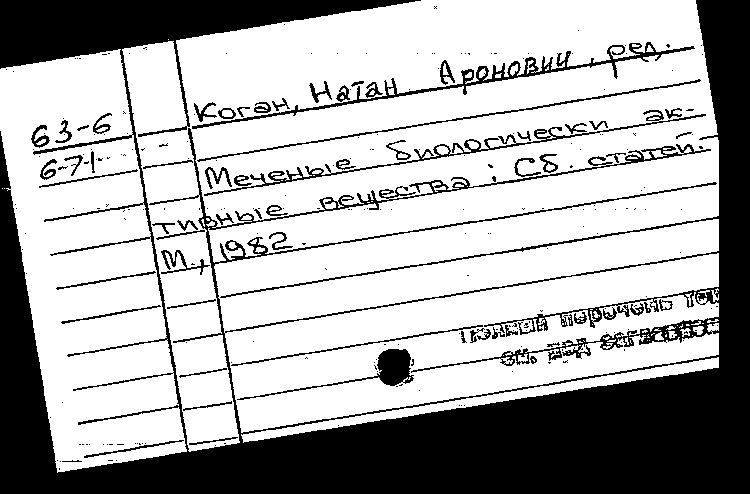 Коган, Натан Аронович, ред.
63-6
6-71
Меченые биологически ак-
тивные вещества : Сб. статей.-
М., 1982.
Полный перечень том
см. под заглавием